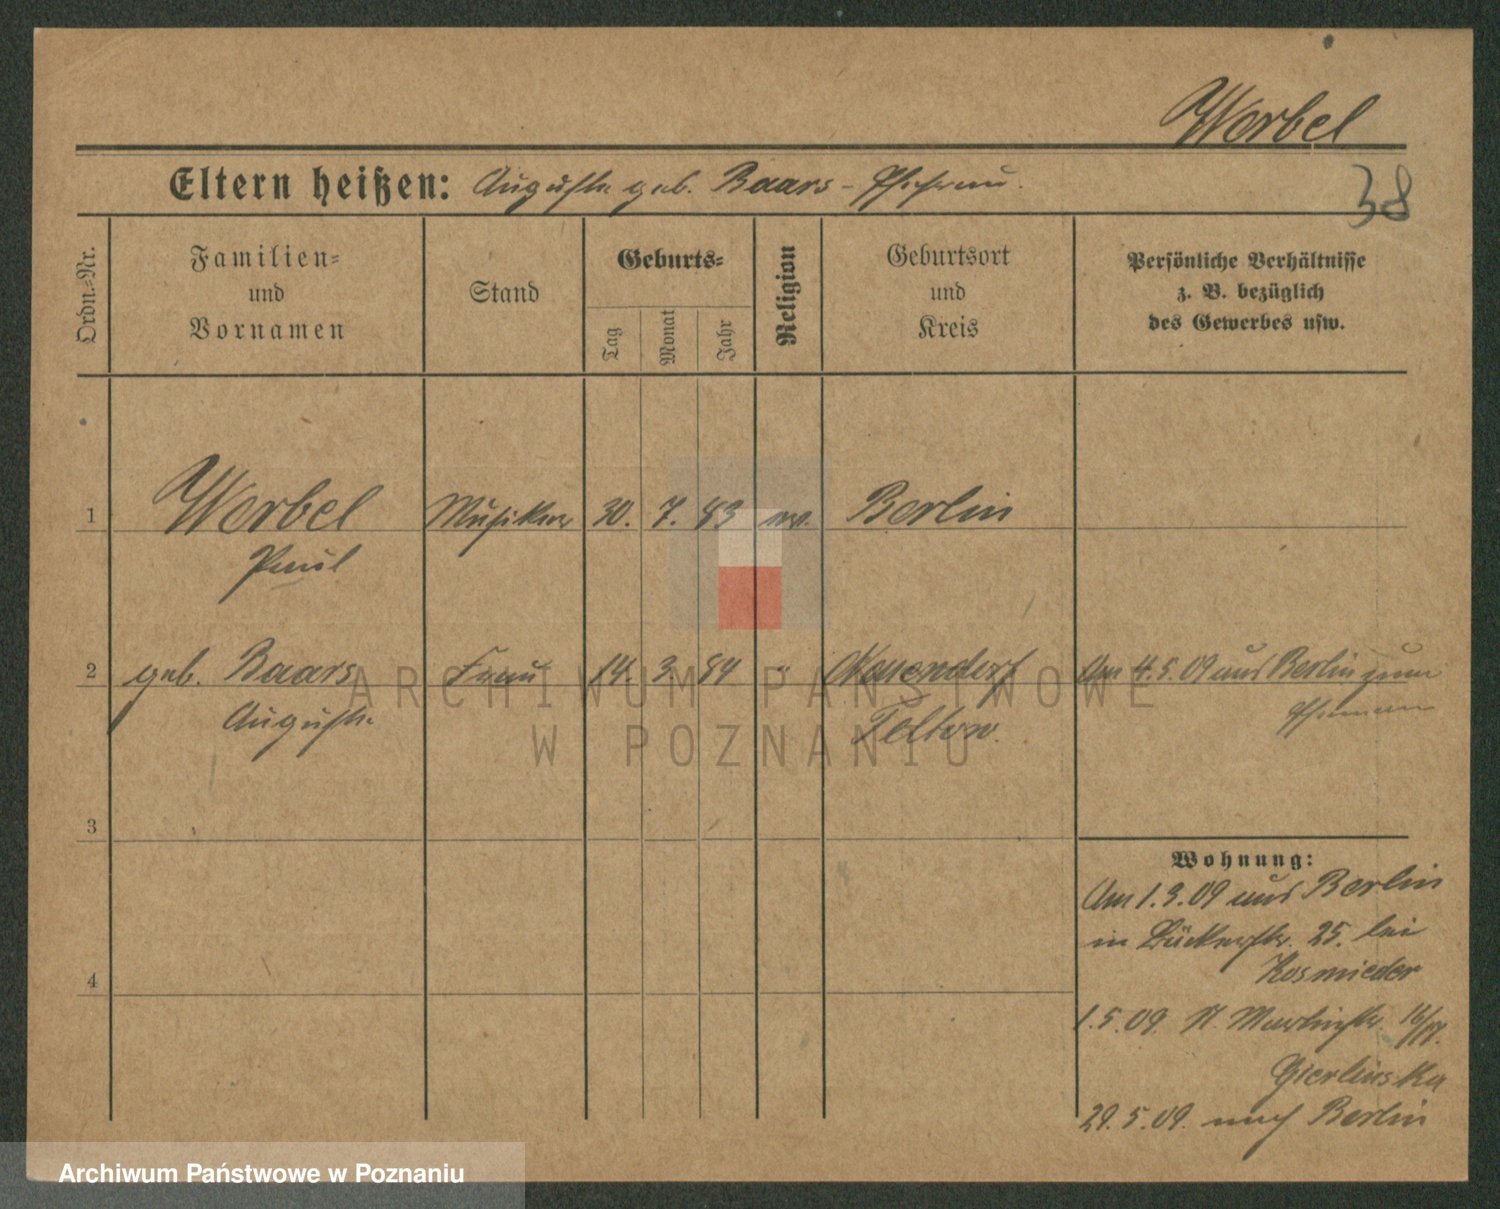 Werbel
Eltern heißen: Auguste geb. Baars - Ehefrau.
38
Ordn.-Nr.
Familien-
und
Vornamen
Stand
Geburts-
Tag
Monat
Jahr
Religion
Geburtsort
und
Kreis
Persönliche Verhältnisse
z. B. bezüglich
des Gewerbes usw.
1 Werbel Musiker 30. 7. 83 ev. Berlin
Paul
2 geb. Baars Frau 14. 3. 84 " Neuendorf Am 4.5.09 aus Berlin zum
Auguste Teltow. Ehemann
3
4
Wohnung:
Am 1.3.09 aus Berlin
in Bäckerstr. 25. bei
Kosmieder
1.5.09. St. Martinstr. 16/17.
Gierlinska
29.5.09. nach Berlin
ARCHIWUM PAŃSTWOWE
W POZNANIU
Archiwum Państwowe w Poznaniu